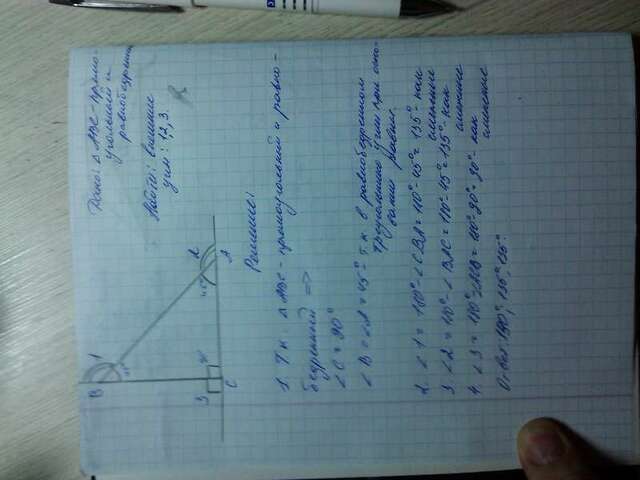 Дано: △ ABC - прямо-
угольный и
равнобедренный
Найти: внешние
углы: 1,2,3.
B 1
45°
45° 2
A
3 4
C
Решение:
1. Т.к. △ ABC - прямоугольный и равно-
бедренный =>
∠C = 90°
∠B = ∠A = 45° т.к в равнобедренном
треугольнике углы при осно-
вании равны.
2. ∠1 = 180° - ∠CBA = 180° - 45° = 135° - как
смежные
3. ∠2 = 180° - ∠BAC = 180° - 45° = 135° - как
смежные
4. ∠3 = 180° - ∠ACB = 180° - 90° = 90° - как
смежные
Ответ: 90°, 135°, 135°